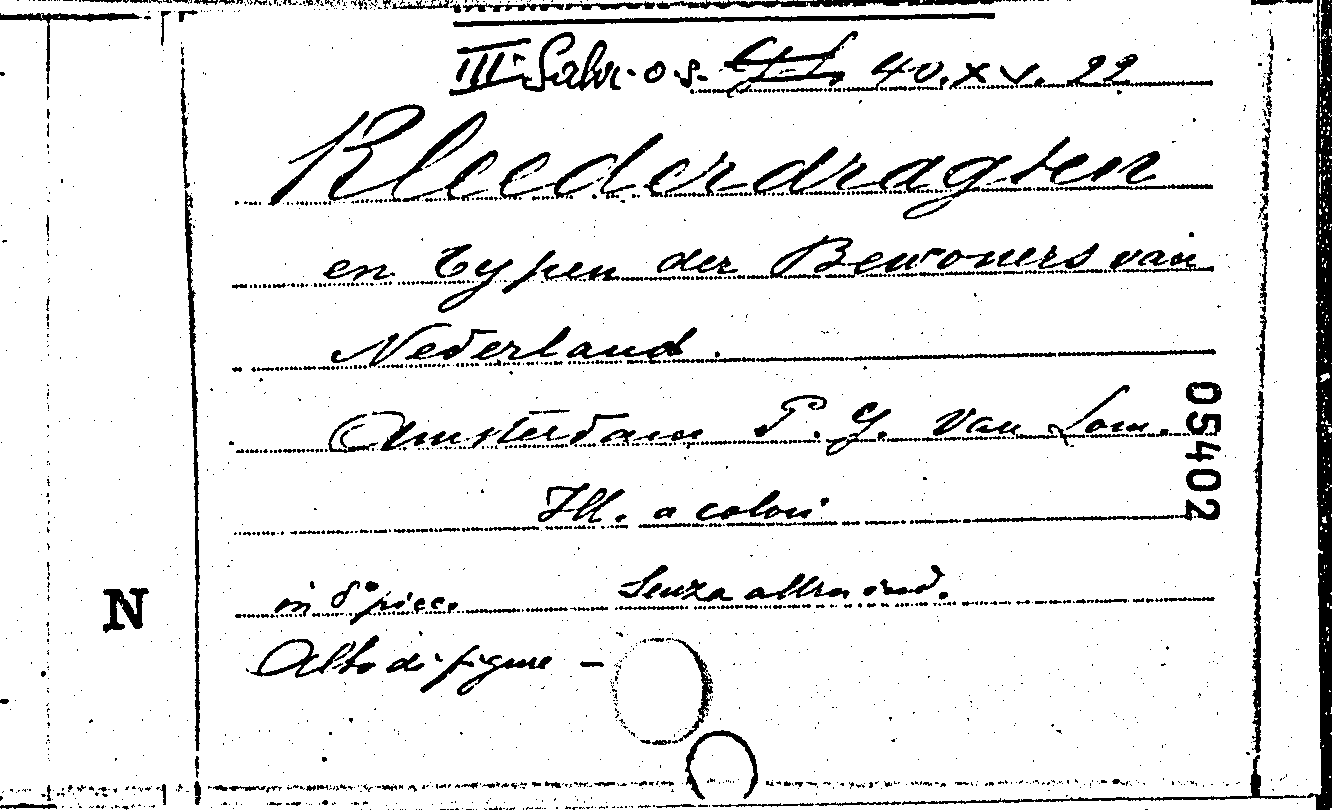 III Salv. o.s. 40.XV.22
Kleederdragten
en Typen der Bewoners van
Nederland.
Amsterdam P. G. van Lom.
Ill. a colori
in 8° picc. Senza altra ind.
Albo di figure –
N
05402